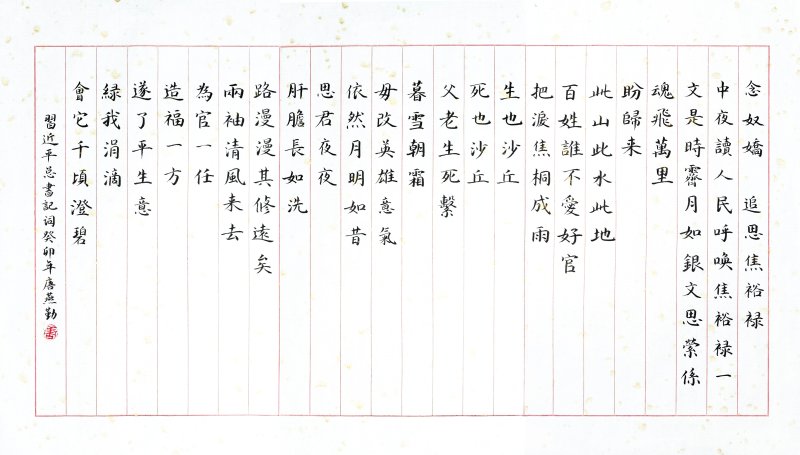 念奴嬌 追思焦裕禄
中夜讀人民呼喚焦裕禄一
文是時霽月如銀文思縈係
魂飛萬里
盼歸来
此山此水此地
百姓誰不愛好官
把淚焦桐成雨
生也沙丘
死也沙丘
父老生死繫
暮雪朝霜
毋改英雄意氣
依然月明如昔
思君夜夜
肝膽長如洗
路漫漫其修遠矣
兩袖清風来去
為官一任
造福一方
遂了平生意
緑我涓滴
會它千頃澄碧
習近平总書記詞癸卯年唐燕勤